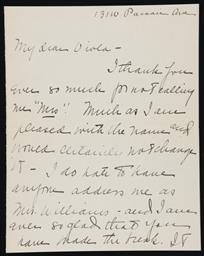 My dear Viola -
I thank you
ever so much for not calling
me "Mrs". Much as I am
pleased with the name and
would certainly not change
it - I do hate to have
anyone address me as
Mrs. Williams - and I am
ever so glad that you
have made the break. It